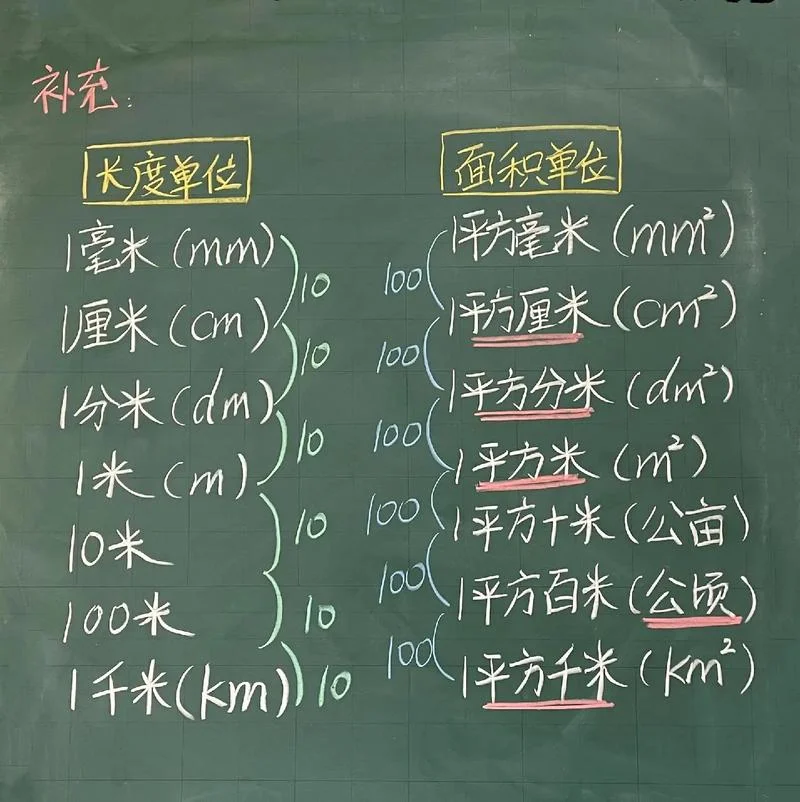 补充:
长度单位
1毫米(mm)
10
1厘米(cm)
10
1分米(dm)
10
1米(m)
10
10米
10
100米
10
1千米(km)
面积单位
1平方毫米(mm²)
100
1平方厘米(cm²)
100
1平方分米(dm²)
100
1平方米(m²)
100
1平方十米(公亩)
100
1平方百米(公顷)
100
1平方千米(km²)